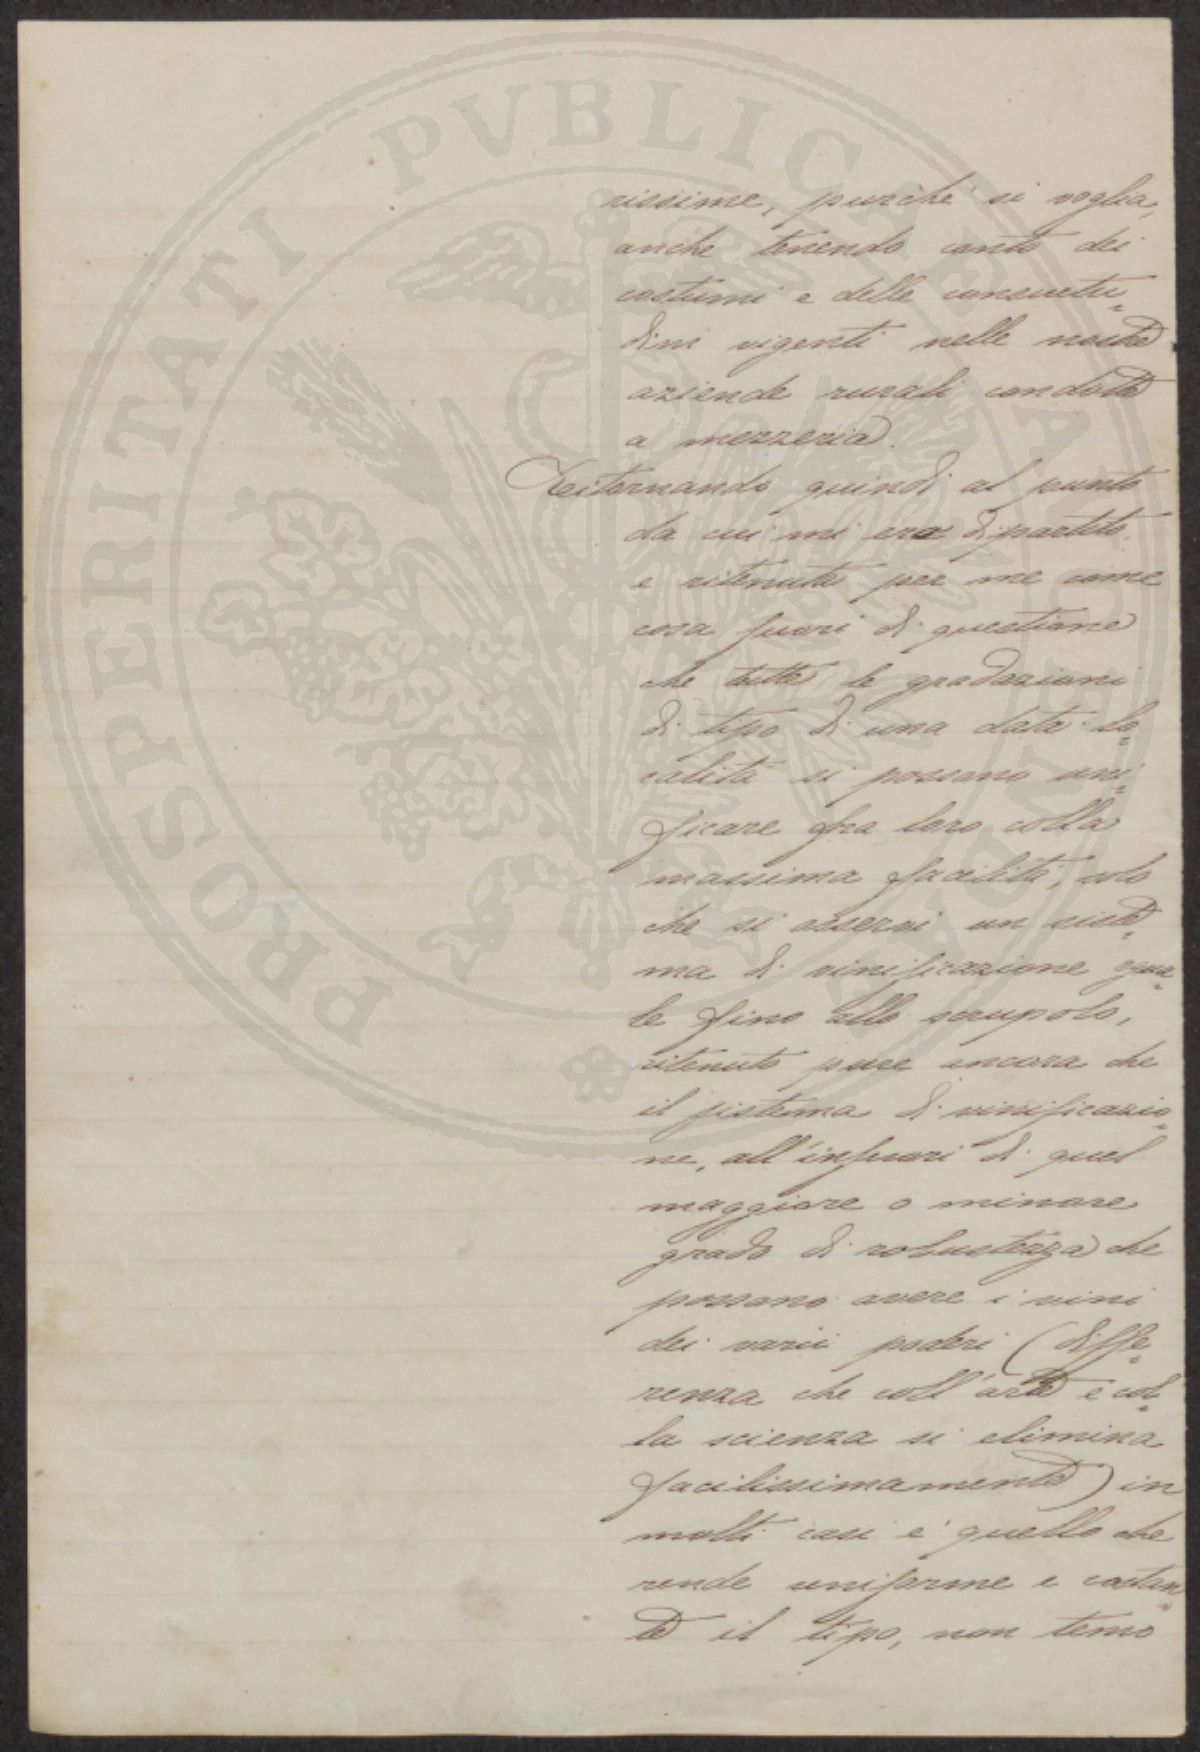 PROSPERITATI PVBLICAE AVGENDAE
rissime, purchè si voglia,
anche tenendo conto dei
costumi e delle consuetu=
dini vigenti nelle nostre
aziende rurali condotte
a mezzeria.
Ritornando quindi al punto
da cui mi era dipartito,
e ritenuto per me come
cosa fuori di questione
che tutte le gradazioni
di tipo di una data lo=
calità si possano uni=
ficare fra loro colla
massima facilità, solo
che si osservi un siste=
ma di vinificazione egua=
le fino allo scrupolo,
ritenuto pure ancora che
il sistema di vinificazio=
ne, all'infuori di quel
maggiore o minore
grado di robustezza che
possano avere i vini
dei varii poderi (diffe=
renza che coll'arte e col=
la scienza si elimina
facilissimamente) in
molti casi è quello che
rende uniforme e costan=
te il tipo, non temo